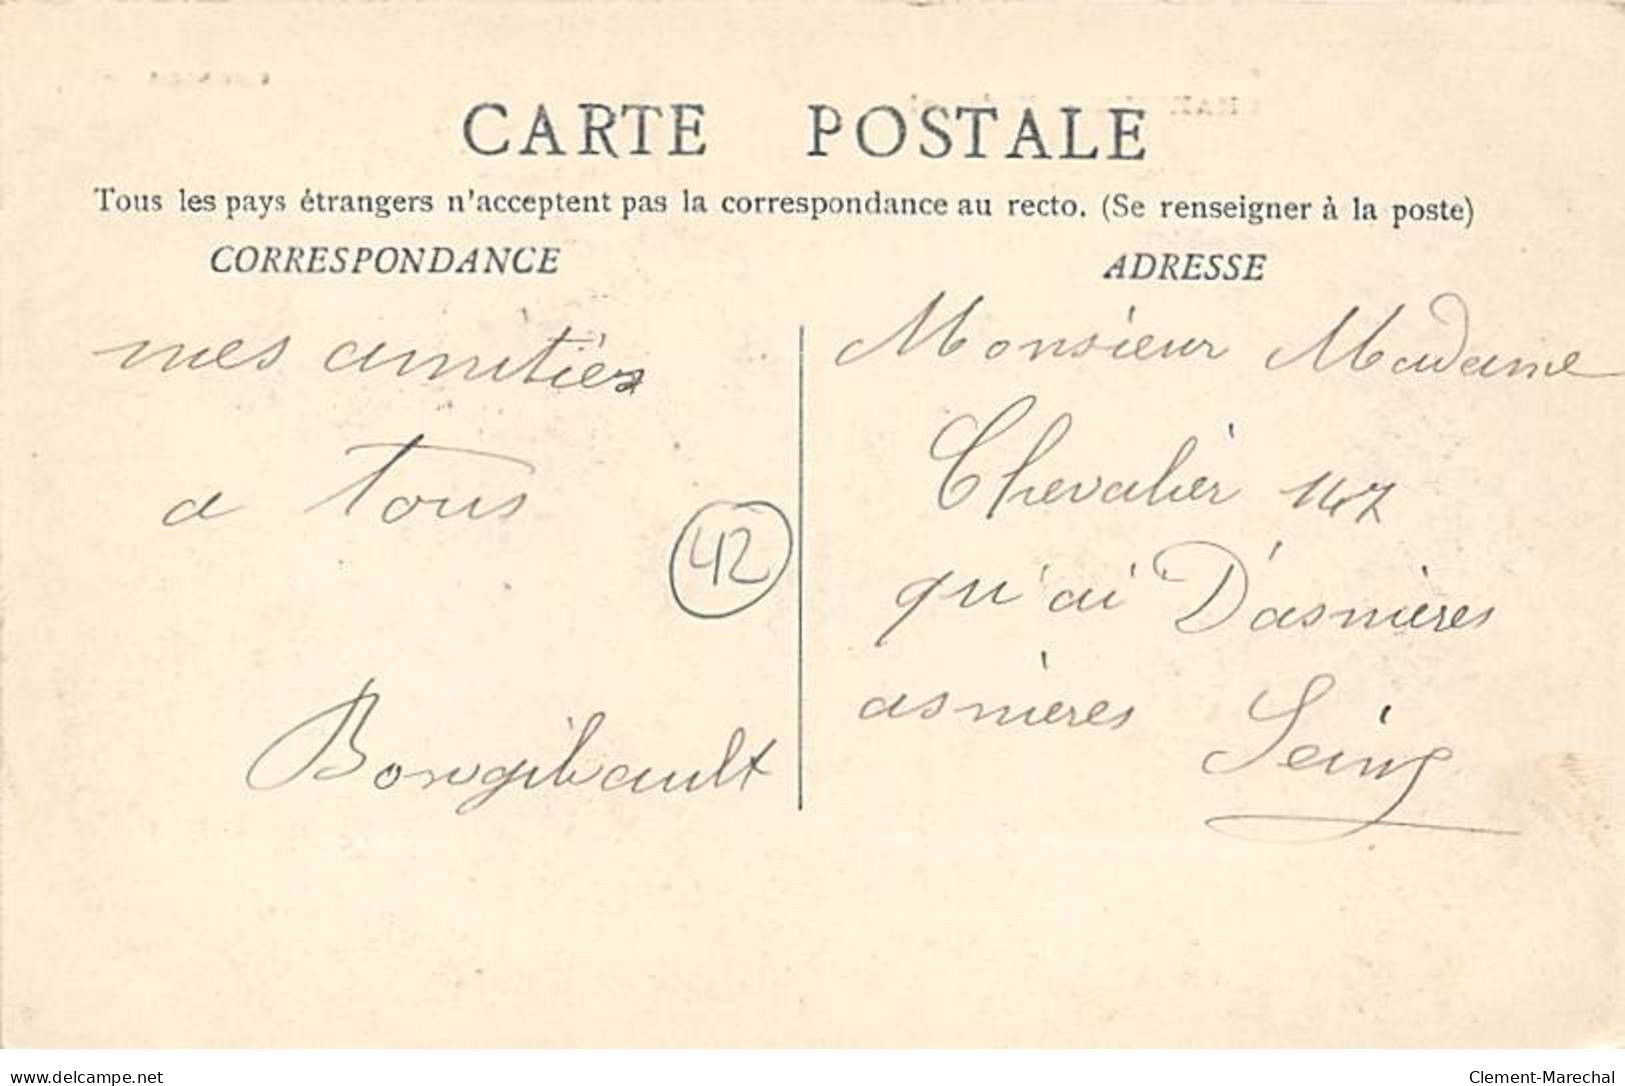 CARTE POSTALE
Tous les pays étrangers n'acceptent pas la correspondance au recto. (Se renseigner à la poste)
CORRESPONDANCE
mes amitiés
a tous
42
Bongibault
ADRESSE
Monsieur Madame
Chevalier 147
qu'ai D'asnières
asnières Seine
www.delcampe.net
Clement-Marechal